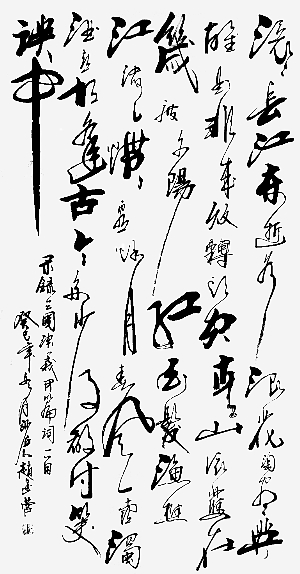 滚滚長江東逝水浪花淘盡英
雄是非成敗轉頭空青山依舊在
幾度夕陽紅白髮漁樵
江渚上慣看秋月春風一壺濁
酒喜相逢古今多少事都付笑
談中
錄三國演義開篇詞一首
癸巳年月趙建營